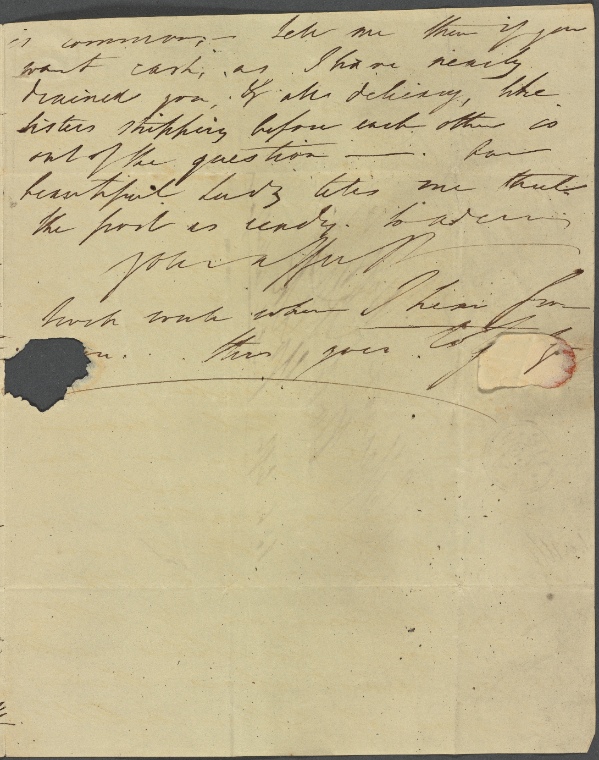 is common; — tell me then if you
want cash; as I have nearly
drained you, & all delicacy, like
sisters stripping before each other is
out of the question — . Our
beautiful Lady tells me that
the post is ready. so adieu
your
work work when I hear from
. . . this goes